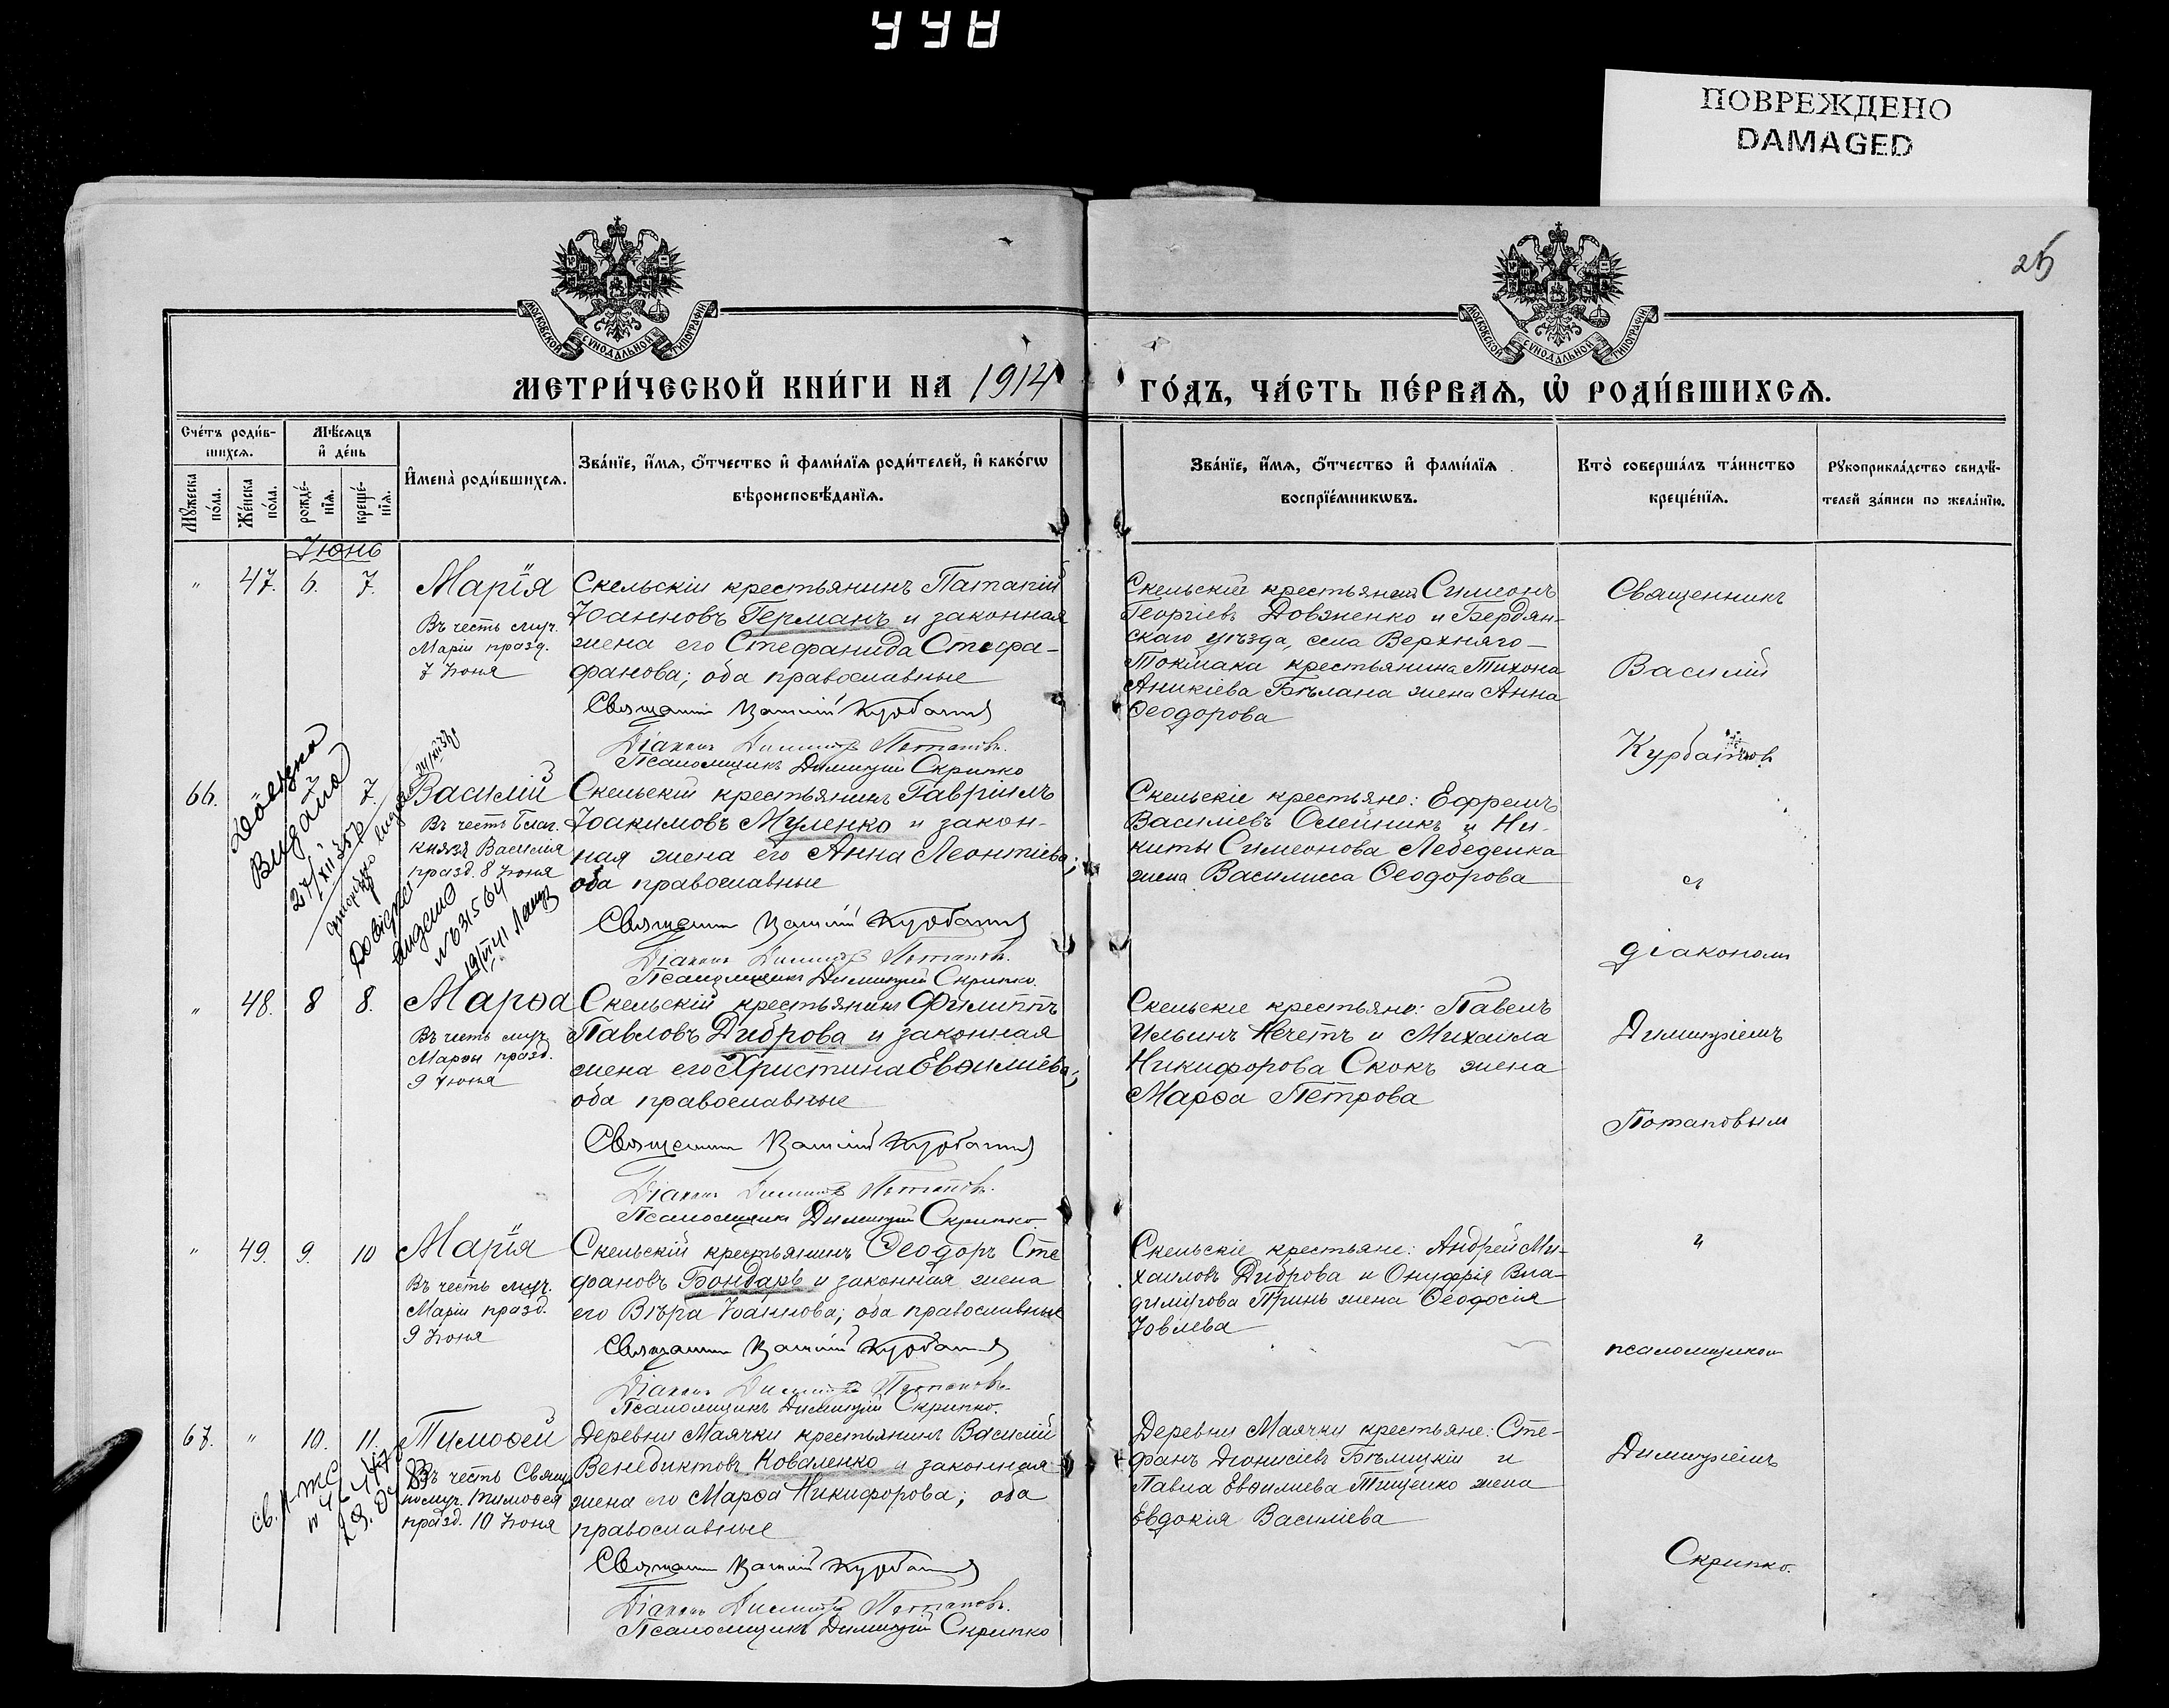 ПОВРЕЖДЕНО
DAMAGED
МОСКОВСКОЙ СѴНОДАЛЬНОЙ ТИПОГРАФІИ
МОСКОВСКОЙ СѴНОДАЛЬНОЙ ТИПОГРАФІИ
МЕТРИ́ЧЕСКОЙ КНИ́ГИ НА 1914 ГО́ДЪ, ЧА́СТЬ ПЕ́РВАѦ, Ѡ҆ РОДИ́ВШИХСѦ.
Сче́тъ роди́в-
шихсѧ.
Мꙋжеска по́ла.
Же́нска по́ла.
Мѣ́сѧцъ
и҆ де́нь
рожде́-
нїѧ.
креще́-
нїѧ.
И҆мена̀ роди́вшихсѧ.
Зва́нїе, и҆́мѧ, ѻ҆́тчество и҆ фами́лїѧ роди́телей, и҆ како́гѡ
вѣроисповѣ́данїѧ.
Зва́нїе, и҆́мѧ, ѻ҆́тчество и҆ фами́лїѧ
воспрїе́мникѡвъ.
Кто̀ соверша́лъ та́инство
креще́нїѧ.
Рꙋкоприкла́дство свидѣ́-
телей за́писи по жела́нїю.
Іюнь
" 47. 6. 7. Марія
Въ честь муч.
Маріи празд.
7 Іюня
Скельскій крестьянинъ Патапій
Іоанновъ Германъ и законная
жена его Стефанида Стефа-
фанова; оба православные
Священникъ Василій Курбатовъ
Діаконъ Димитрій Потаповъ.
Псаломщикъ Димитрій Скрипко
Скельскій крестьянинъ Симеонъ
Георгіевъ Довженко и Бердян-
скаго уѣзда, села Верхняго-
Токмака крестьянина Тихона
Аникіева Бѣлана жена Анна
Ѳеодорова
Священникъ
Василій
Курбатовъ
66. " 7. Василій
Въ честь Благ.
князя Василія
празд. 8 Іюня
Скельскій крестьянинъ Гавріилъ
Іоакимовъ Муленко и закон-
ная жена его Анна Леонтіева;
оба православные
Священникъ Василій Курбатовъ
Діаконъ Димитрій Потаповъ.
Псаломщикъ Димитрій Скрипко.
Скельскіе крестьяне: Ефремъ
Василіевъ Олейникъ и Ни-
киты Симеонова Лебеденка
жена Василиса Ѳеодорова
съ
діакономъ
" 48. 8 8. Марѳа
Въ честь муч.
Марѳы празд.
9 Іюня
Скельскій крестьянинъ Филиппъ
Павловъ Диброва и законная
жена его Христина Евѳиміева;
оба православные
Священникъ Василій Курбатовъ
Діаконъ Димитрій Потаповъ.
Псаломщикъ Димитрій Скрипко.
Скельскіе крестьяне: Павелъ
Ильинъ Нечетъ и Михаила
Никифорова Скокъ жена
Марѳа Петрова
Димитріемъ
Потаповымъ
" 49. 9. 10 Марія
Въ честь муч.
Маріи празд.
9 Іюня
Скельскій крестьянинъ Ѳеодоръ Сте
фановъ Бондарь и законная жена
его Вѣра Іоаннова; оба православные
Священникъ Василій Курбатовъ
Діаконъ Димитрій Потаповъ.
Псаломщикъ Димитрій Скрипко.
Скельскіе крестьяне: Андрей Ми-
хаиловъ Диброва и Онуфрія Вла-
димірова Принь жена Ѳеодосія
Іовлева
и
псаломщикомъ
67. " 10. 11. Тимоѳей
Въ честь Свящ.
номуч. Тимоѳея
празд. 10 Іюня
Деревни Маячки крестьянинъ Василій
Венедиктовъ Коваленко и законная
жена его Марѳа Никифорова; оба
православные
Священникъ Василій Курбатовъ
Діаконъ Димитрій Потаповъ.
Псаломщикъ Димитрій Скрипко
Деревни Маячки крестьяне: Сте-
фанъ Діонисіевъ Бѣлицкій и
Павла Евѳиміева Тищенко жена
Евдокія Василіева
Димитріемъ
Скрипко.